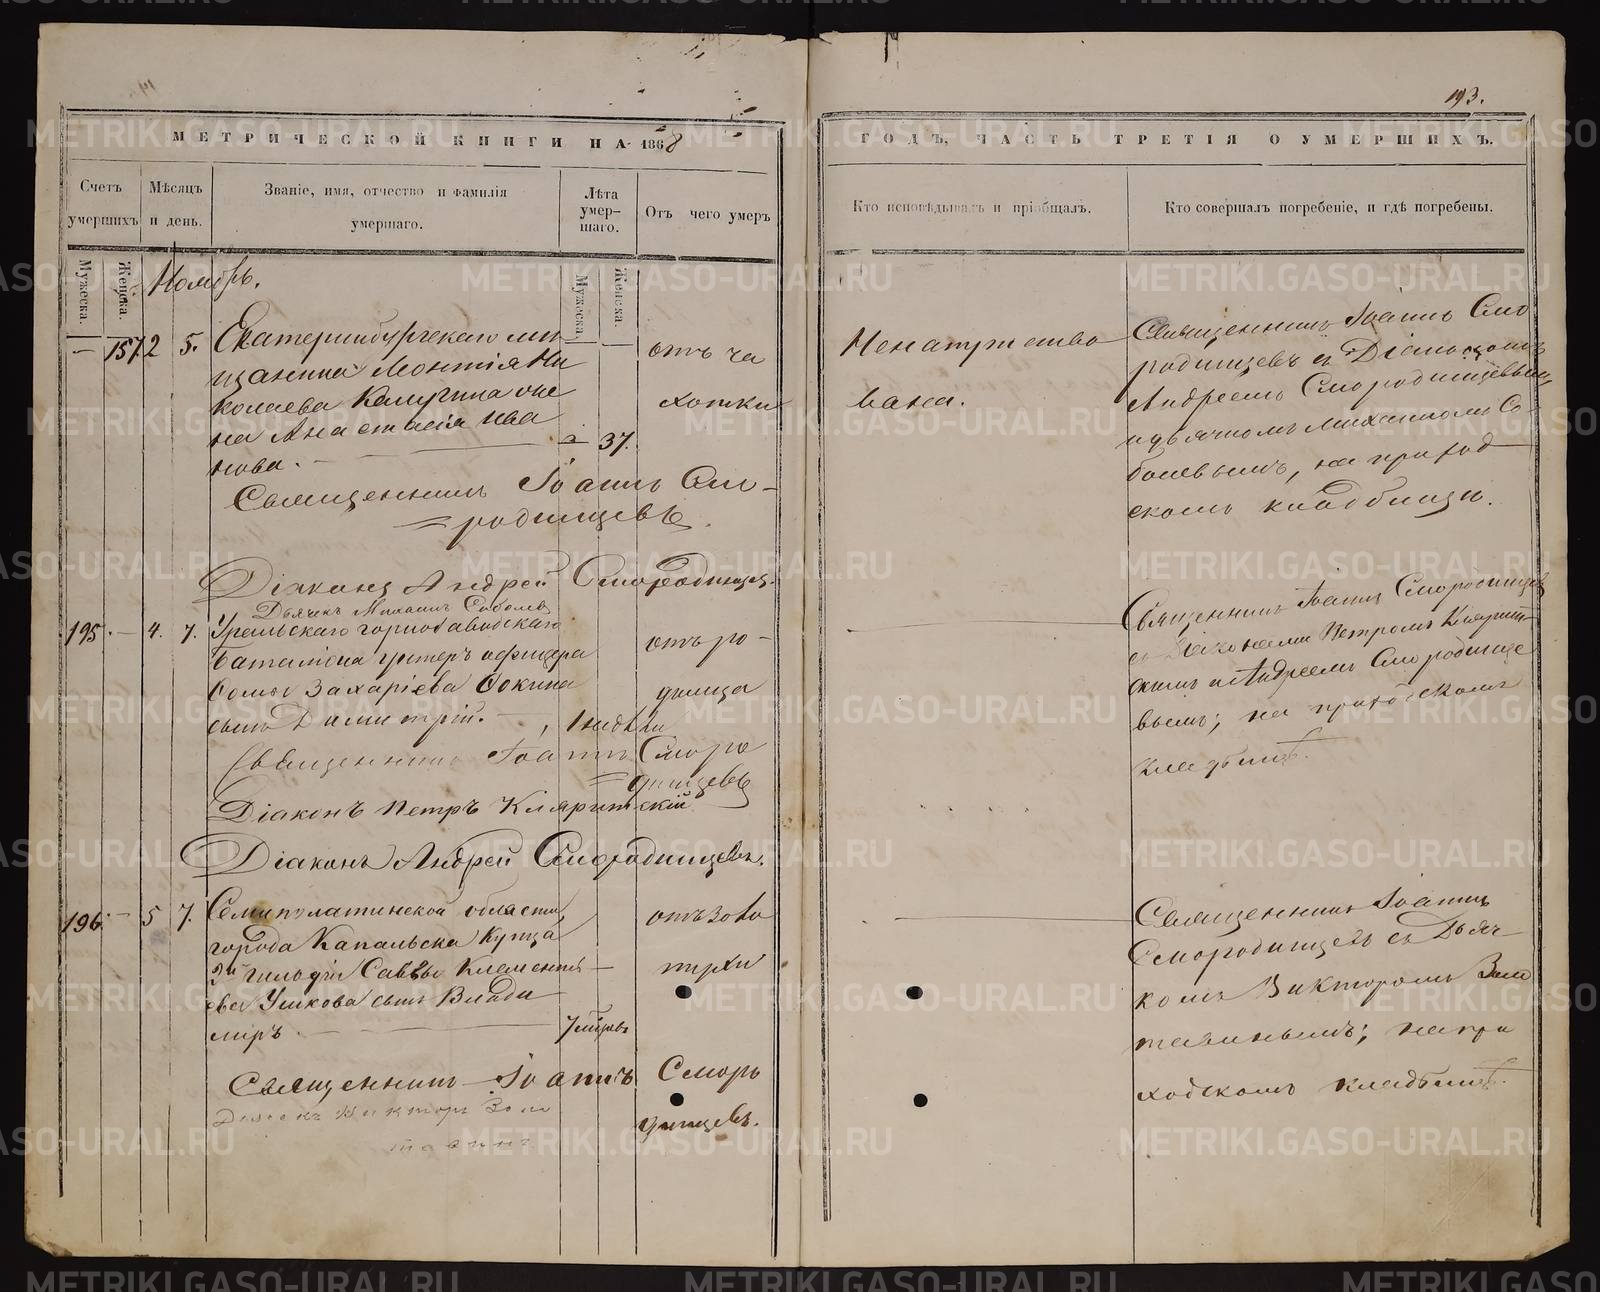 193.
МЕТРИЧЕСКОЙ КНИГИ НА 1868
ГОДЪ, ЧАСТЬ ТРЕТІЯ О УМЕРШИХЪ.
Счетъ умершихъ
Мѣсяцъ и день.
Званіе, имя, отчество и фамилія умершаго.
Лѣта умер-
шаго.
Отъ чего умеръ
Кто исповѣдывалъ и пріобщалъ.
Кто совершалъ погребеніе, и гдѣ погребены.
Мужеска.
Женска.
Мужеска.
Женска.
Ноябрь.
— 157 2 5.
Екатеринбургскаго мѣ
щанина Монтія Ни
колаева Калугина же
на Анастасія Ива
нова.
37.
отъ ча
хотки
Священникъ Іоаннъ Смо-
родинцевъ.
Діаконъ Андрей Смородинцевъ.
Дьячекъ Михаилъ Соболевъ
Священникъ Іоаннъ Смо
родинцевъ съ Діакономъ
Андреемъ Смородинцевымъ
и дьячкомъ Михаиломъ Со-
болевымъ, на приход
скомъ кладбищи.
195. — 4. 7.
Уральскаго горнозаводскаго
Баталіона унтеръ офицера
Захаріева
сынъ Димитрій.
1 недѣли
отъ ро-
димца
Священникъ Іоаннъ Сморо
динцевъ
Діаконъ Петръ
Діаконъ Андрей Смородинцевъ.
Священникъ Іоаннъ Смородинцевъ
съ Діаконами Петромъ
и Андреемъ Смородинце
вымъ; на приходскомъ
кладбищѣ.
196. — 5 7.
Семиполатинской области,
города Капальска Купца
2й гильдіи Саввы Клементі
ева Ушкова сынъ Влади
миръ.
отъ золо
тухи
Священникъ Іоаннъ Сморо
динцевъ.
Дьячекъ Викторъ Золо
тавинъ
Священникъ Іоаннъ
Смородинцевъ съ Дьяч
комъ Викторомъ Золо
тавинымъ; на при
ходскомъ кладбищѣ.
METRIKI.GASO-URAL.RU